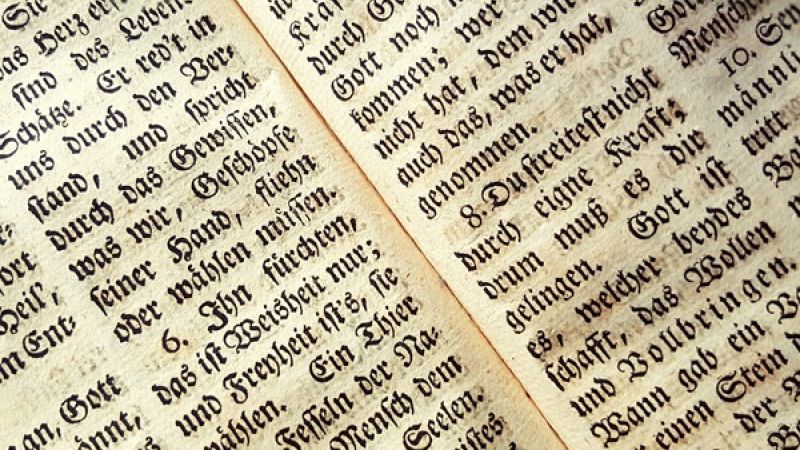 Heil,
Ent-
an, Gott
Sie
Herz
sind des Lebens
Schätze. Er red't in
uns durch den Ver-
stand, und spricht
durch das Gewissen,
was wir, Geschöpfe
seiner Hand, fliehn
oder wählen müssen.
6. Ihn fürchten,
das ist Weisheit nur;
und Freyheit ists, sie
wählen. Ein Thier
Fesseln der Na-
Mensch dem
Seelen.
Kraft
durch
Gott noch
kommen; wer
nicht hat, dem wird
auch das, was er hat,
genommen.
8. Du streitest nicht
durch eigne Kraft;
drum muß es dir
gelingen. Gott ist
es, welcher beydes
schafft, das Wollen
und Vollbringen.
Wann gab ein
einen Stein
der
Gott
10.
männli
tritt